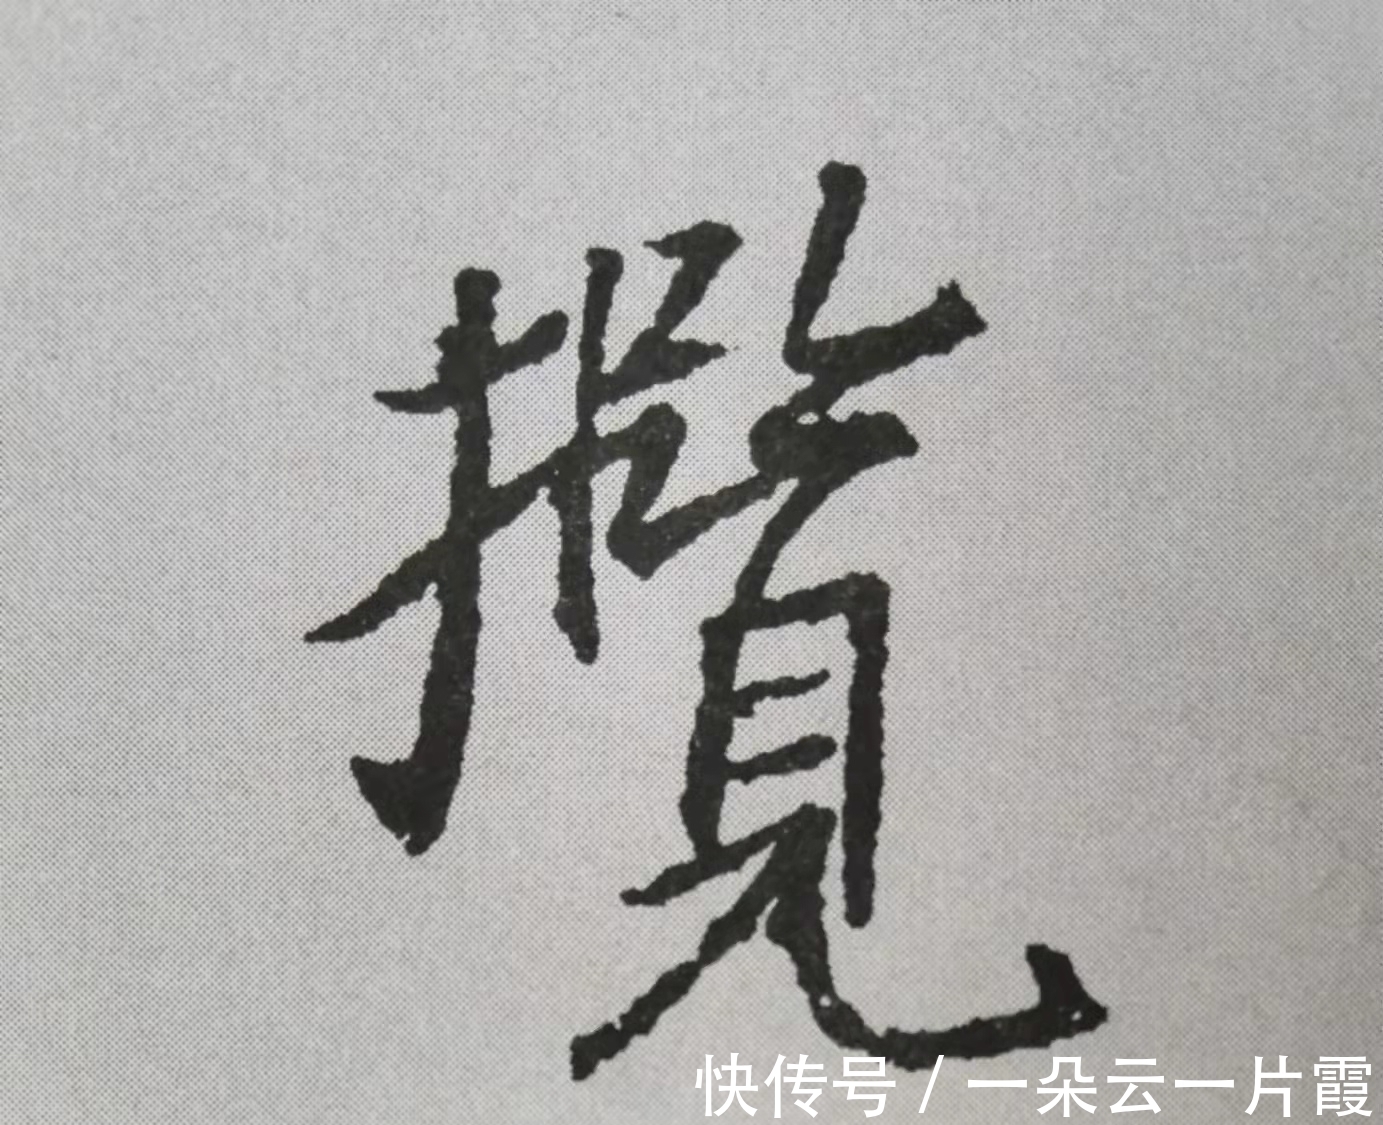 攬
快传号/一朵云一片霞